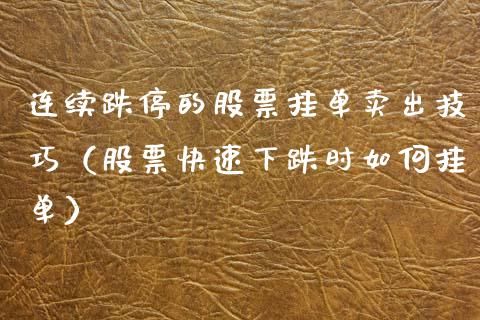 连续跌停的股票挂单卖出技
巧（股票快速下跌时如何挂
单）